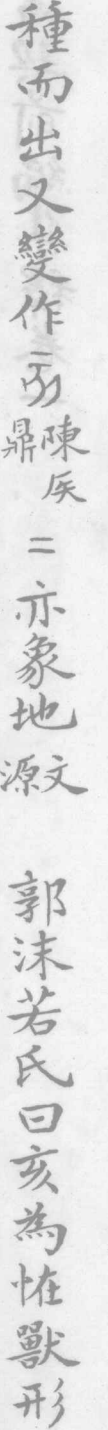 種而出又變作陳侯鼎二亦象地文源 郭沫若氏曰亥為恠獸形